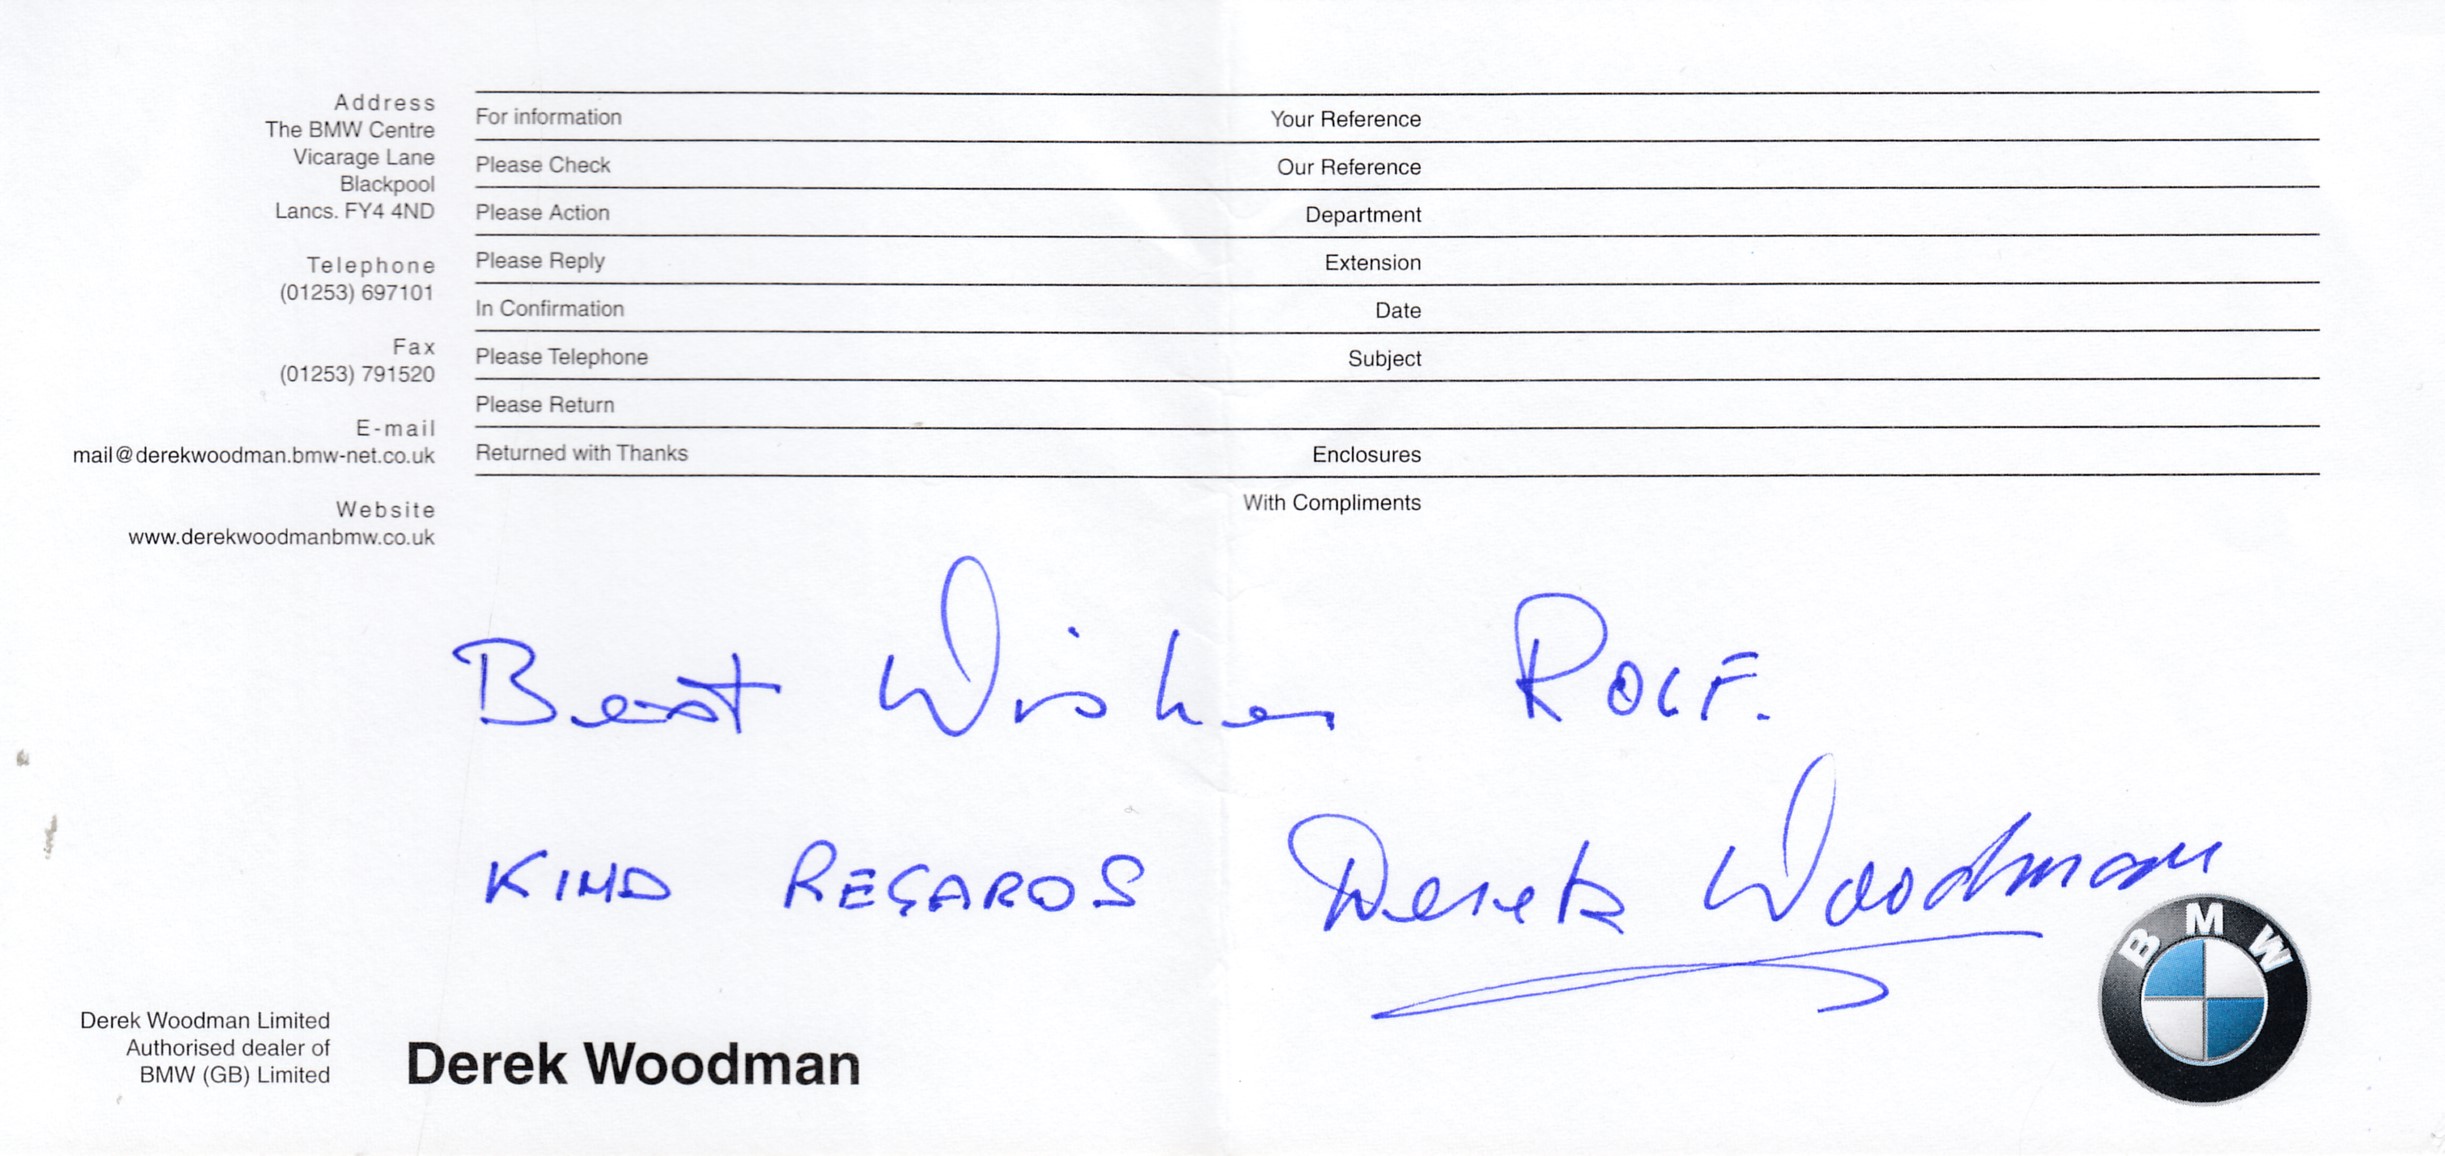 Address
The BMW Centre
Vicarage Lane
Blackpool
Lancs. FY4 4ND
Telephone
(01253) 697101
Fax
(01253) 791520
E-mail
mail@derekwoodman.bmw-net.co.uk
Website
www.derekwoodmanbmw.co.uk
For information
Please Check
Please Action
Please Reply
In Confirmation
Please Telephone
Please Return
Returned with Thanks
Your Reference
Our Reference
Department
Extension
Date
Subject
Enclosures
With Compliments
Best Wishes ROLF.
KIND REGARDS Derek Woodman
Derek Woodman Limited
Authorised dealer of
BMW (GB) Limited
Derek Woodman
BMW